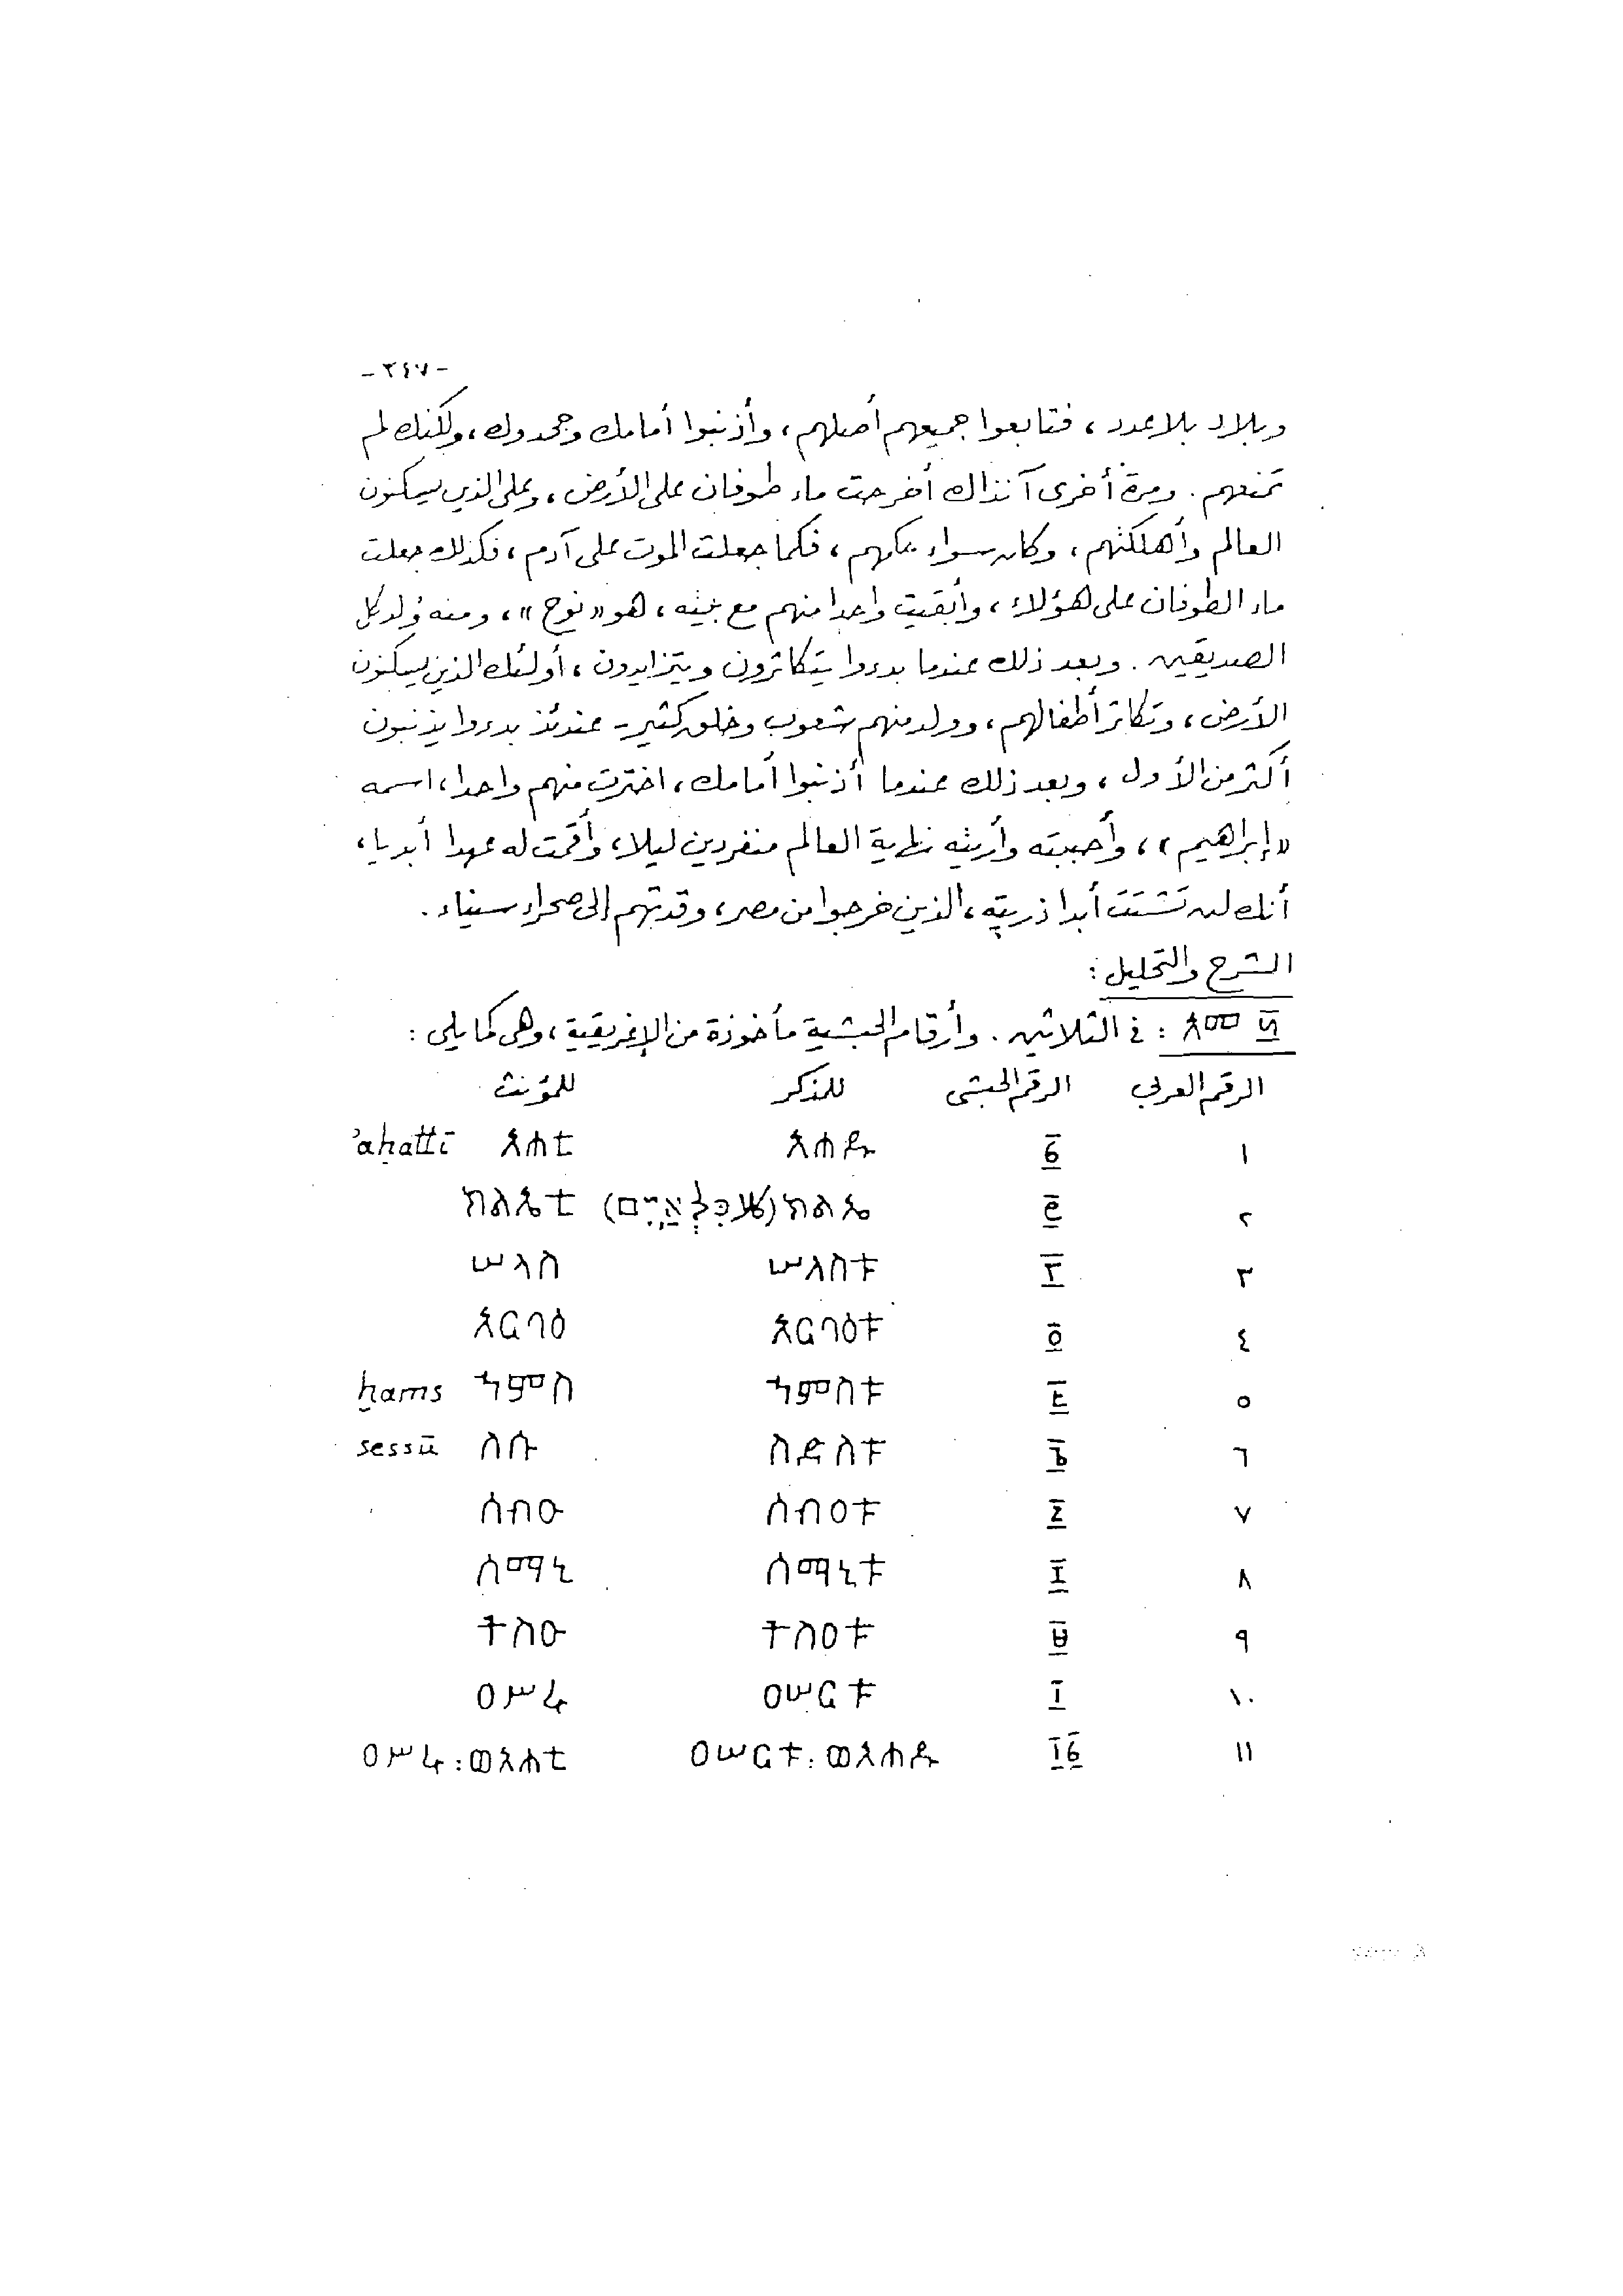 -٣٤٧-
وبلاد بلا عدد، فتابعوا جميعهم أصلهم، وأذنبوا أمامك وجحدوك، ولكنك لم
تمنعهم. ومرة أخرى آنذاك أخرجت ماء طوفان على الأرض، وعلى الذين يسكنون
العالم وأهلكتهم، وكان سواء حكمهم، فكما جعلت الموت على آدم، فكذلك جعلت
ماء الطوفان على هؤلاء، وأبقيت واحدا منهم مع بيته، هو «نوح»، ومنه وُلد كل
الصديقين. وبعد ذلك عندما بدءوا يتكاثرون ويتزايدون، أولئك الذين يسكنون
الأرض، وتكاثر أطفالهم، وولد منهم شعوب وخلق كثير - عندئذ بدءوا يذنبون
أكثر من الأول، وبعد ذلك عندما أذنبوا أمامك، اخترت منهم واحدا، اسمه
«إبراهيم»، وأحببته وأريته نهاية العالم منفردين ليلا، وأقمت له عهدا أبديا،
أنك لن تشتت أبدا ذريته، الذين خرجوا من مصر، وقدتهم إلى صحراء سيناء.
الشرح والتحليل:
: في الثلاثين. وأرقام الحبشية مأخوذة من الإغريقية، وهى كما يلى:
الرقم العربى الرقم الحبشى للمذكر للمؤنث
١ ፩ አሐዱ አሐቲ ʾaḥattī
٢ ፪ ክልኤ (כִּלְאַיִם) ክልኤቲ
٣ ፫ ሠለስቱ ሠላስ
٤ ፬ አርባዕቱ አርባዕ
٥ ፭ ኀምስቱ ኀምስ ḫams
٦ ፮ ስድስቱ ስሱ sessū
٧ ፯ ሰብዐቱ ሰብዑ
٨ ፰ ሰማኒቱ ሰማኒ
٩ ፱ ተስዐቱ ተስዑ
١٠ ፲ ዐሠርቱ ዐሥሩ
١١ ፲፩ ዐሠርቱ፡ወአሐዱ ዐሥሩ፡ወአሐቲ